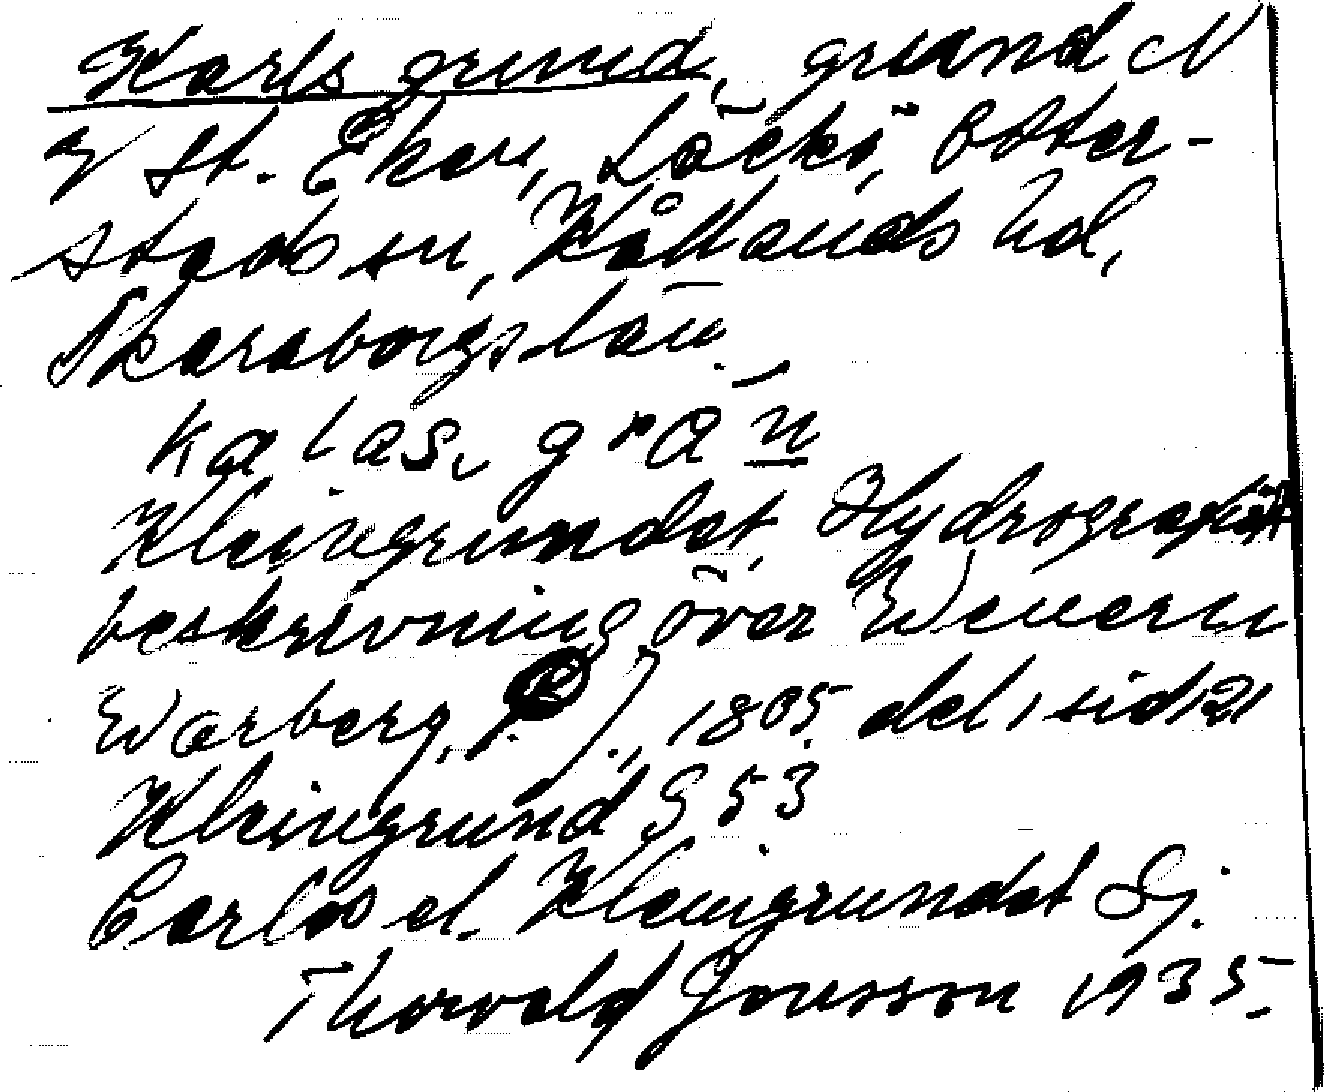 Karls grund, grund N
V St. Eken, Läckö, Otter-
stads sn, Kållands hd,
Skaraborgs län.
kalas, grän
Kleingrundet, Hydrografisk
beskrivning över Wenern
Warberg, J., 1805 del 1 sid 121
Kleingrund S 53
Carlss el. Kleingrundet Sj.
Thorvald Jonsson 1935.